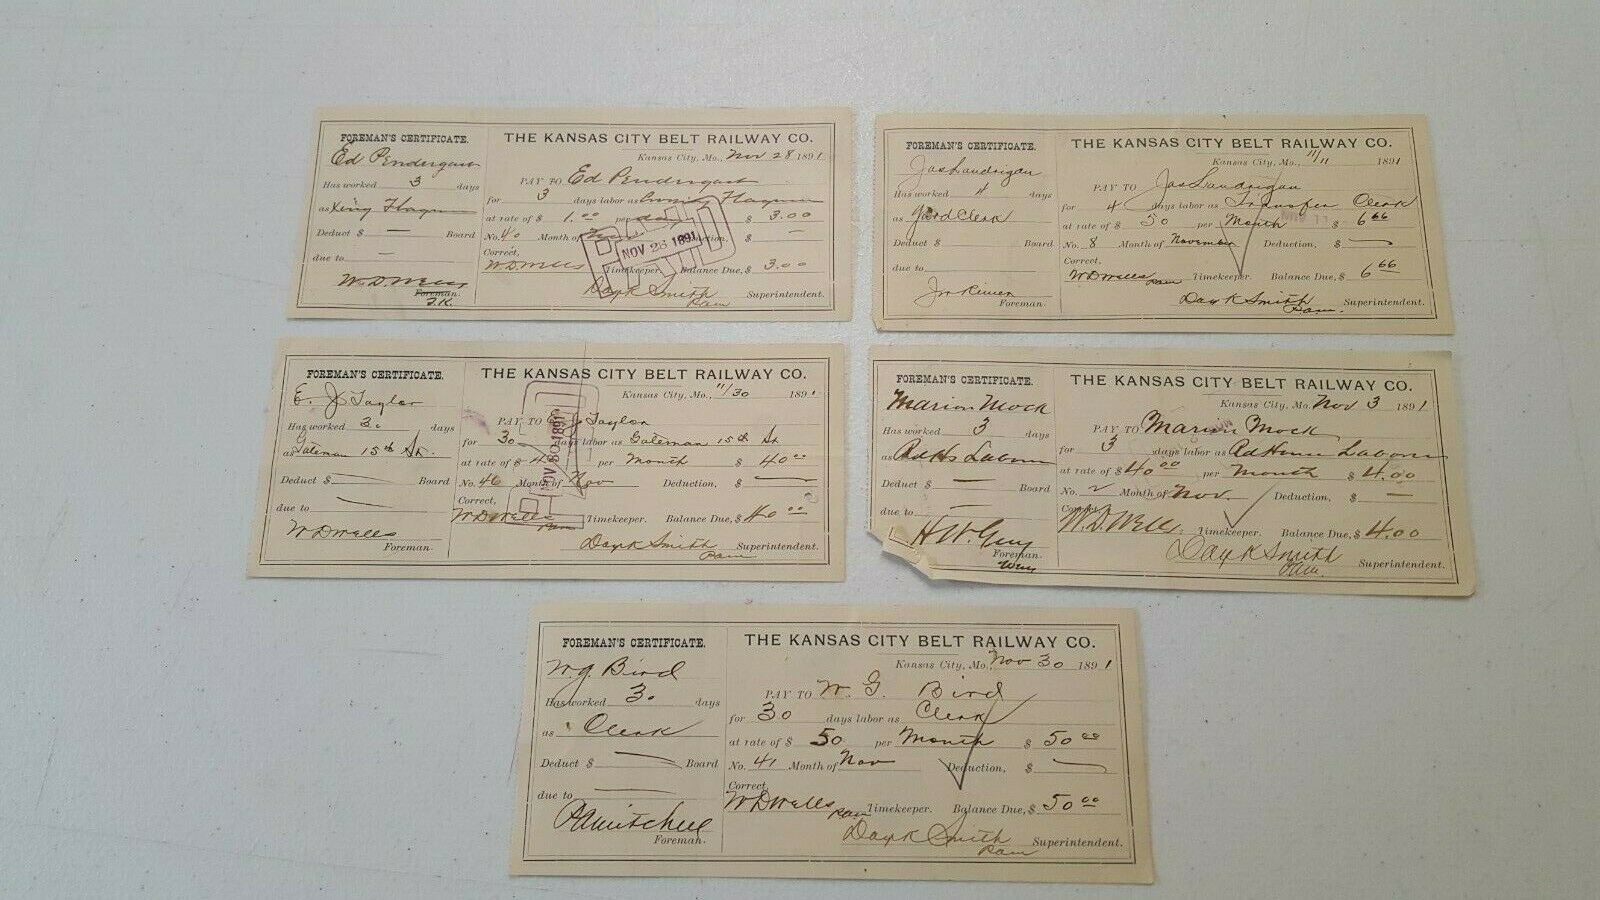 FOREMAN'S CERTIFICATE.
Ed Pendergast
Has worked 3 days
as Xing Flagman
Deduct $ — Board
due to —
W.D. Wells
Foreman.
THE KANSAS CITY BELT RAILWAY CO.
Kansas City, Mo., Nov 28 1891
PAY TO Ed Pendergast
for 3 days labor as Crossing Flagman
at rate of $ 1.00 per day $ 3.00
No. 40 Month of Nov Deduction, $ —
Correct,
W.D. Wells Timekeeper. Balance Due, $ 3.00
Dayk Smith Superintendent.
PAID
NOV 28 1891
FOREMAN'S CERTIFICATE.
Jas Landrigan
Has worked 4 days
as Yard Clerk
Deduct $ Board
due to
Foreman.
THE KANSAS CITY BELT RAILWAY CO.
Kansas City, Mo., 11/11 1891
PAY TO Jas Landrigan
for 4 days labor as Transfer Clerk
at rate of $ 50 per Month $ 6 66
No. 8 Month of November Deduction, $ —
Correct,
W D Wells Timekeeper. Balance Due, $ 6 66
Dayk Smith Superintendent.
FOREMAN'S CERTIFICATE.
E. J Taylor
Has worked 30 days
as Gateman 15th St.
Deduct $ — Board
due to —
W D Wells
Foreman.
THE KANSAS CITY BELT RAILWAY CO.
Kansas City, Mo., 11/30 1891
PAY TO Taylor
for 30 days labor as Gateman 15th St
at rate of $ per Month $ 40 00
No. 46 Month of Nov Deduction, $ —
Correct,
W D Wells Timekeeper. Balance Due, $ 40 00
Dayk Smith Superintendent.
NOV 30 1891
FOREMAN'S CERTIFICATE.
Marion Mock
Has worked 3 days
as Rd Hs Labor
Deduct $ — Board
due to —
H W. Guy
Foreman.
THE KANSAS CITY BELT RAILWAY CO.
Kansas City, Mo. Nov 3 1891
PAY TO Marion Mock
for 3 days labor as Rd House Labor
at rate of $ 40 00 per Month $ 4.00
No. 2 Month of Nov. Deduction, $ —
Correct,
W. D. Wells. Timekeeper. Balance Due, $ 4.00
Dayk Smith Superintendent.
FOREMAN'S CERTIFICATE.
W. G. Bird
Has worked 30 days
as Clerk
Deduct $ — Board
due to —
Mitchell
Foreman.
THE KANSAS CITY BELT RAILWAY CO.
Kansas City, Mo. Nov 30 1891
PAY TO W. G. Bird
for 30 days labor as Clerk
at rate of $ 50 per Month $ 50 00
No. 41 Month of Nov Deduction, $ —
Correct,
W D Wells Timekeeper. Balance Due, $ 50 00
Dayk Smith Superintendent.